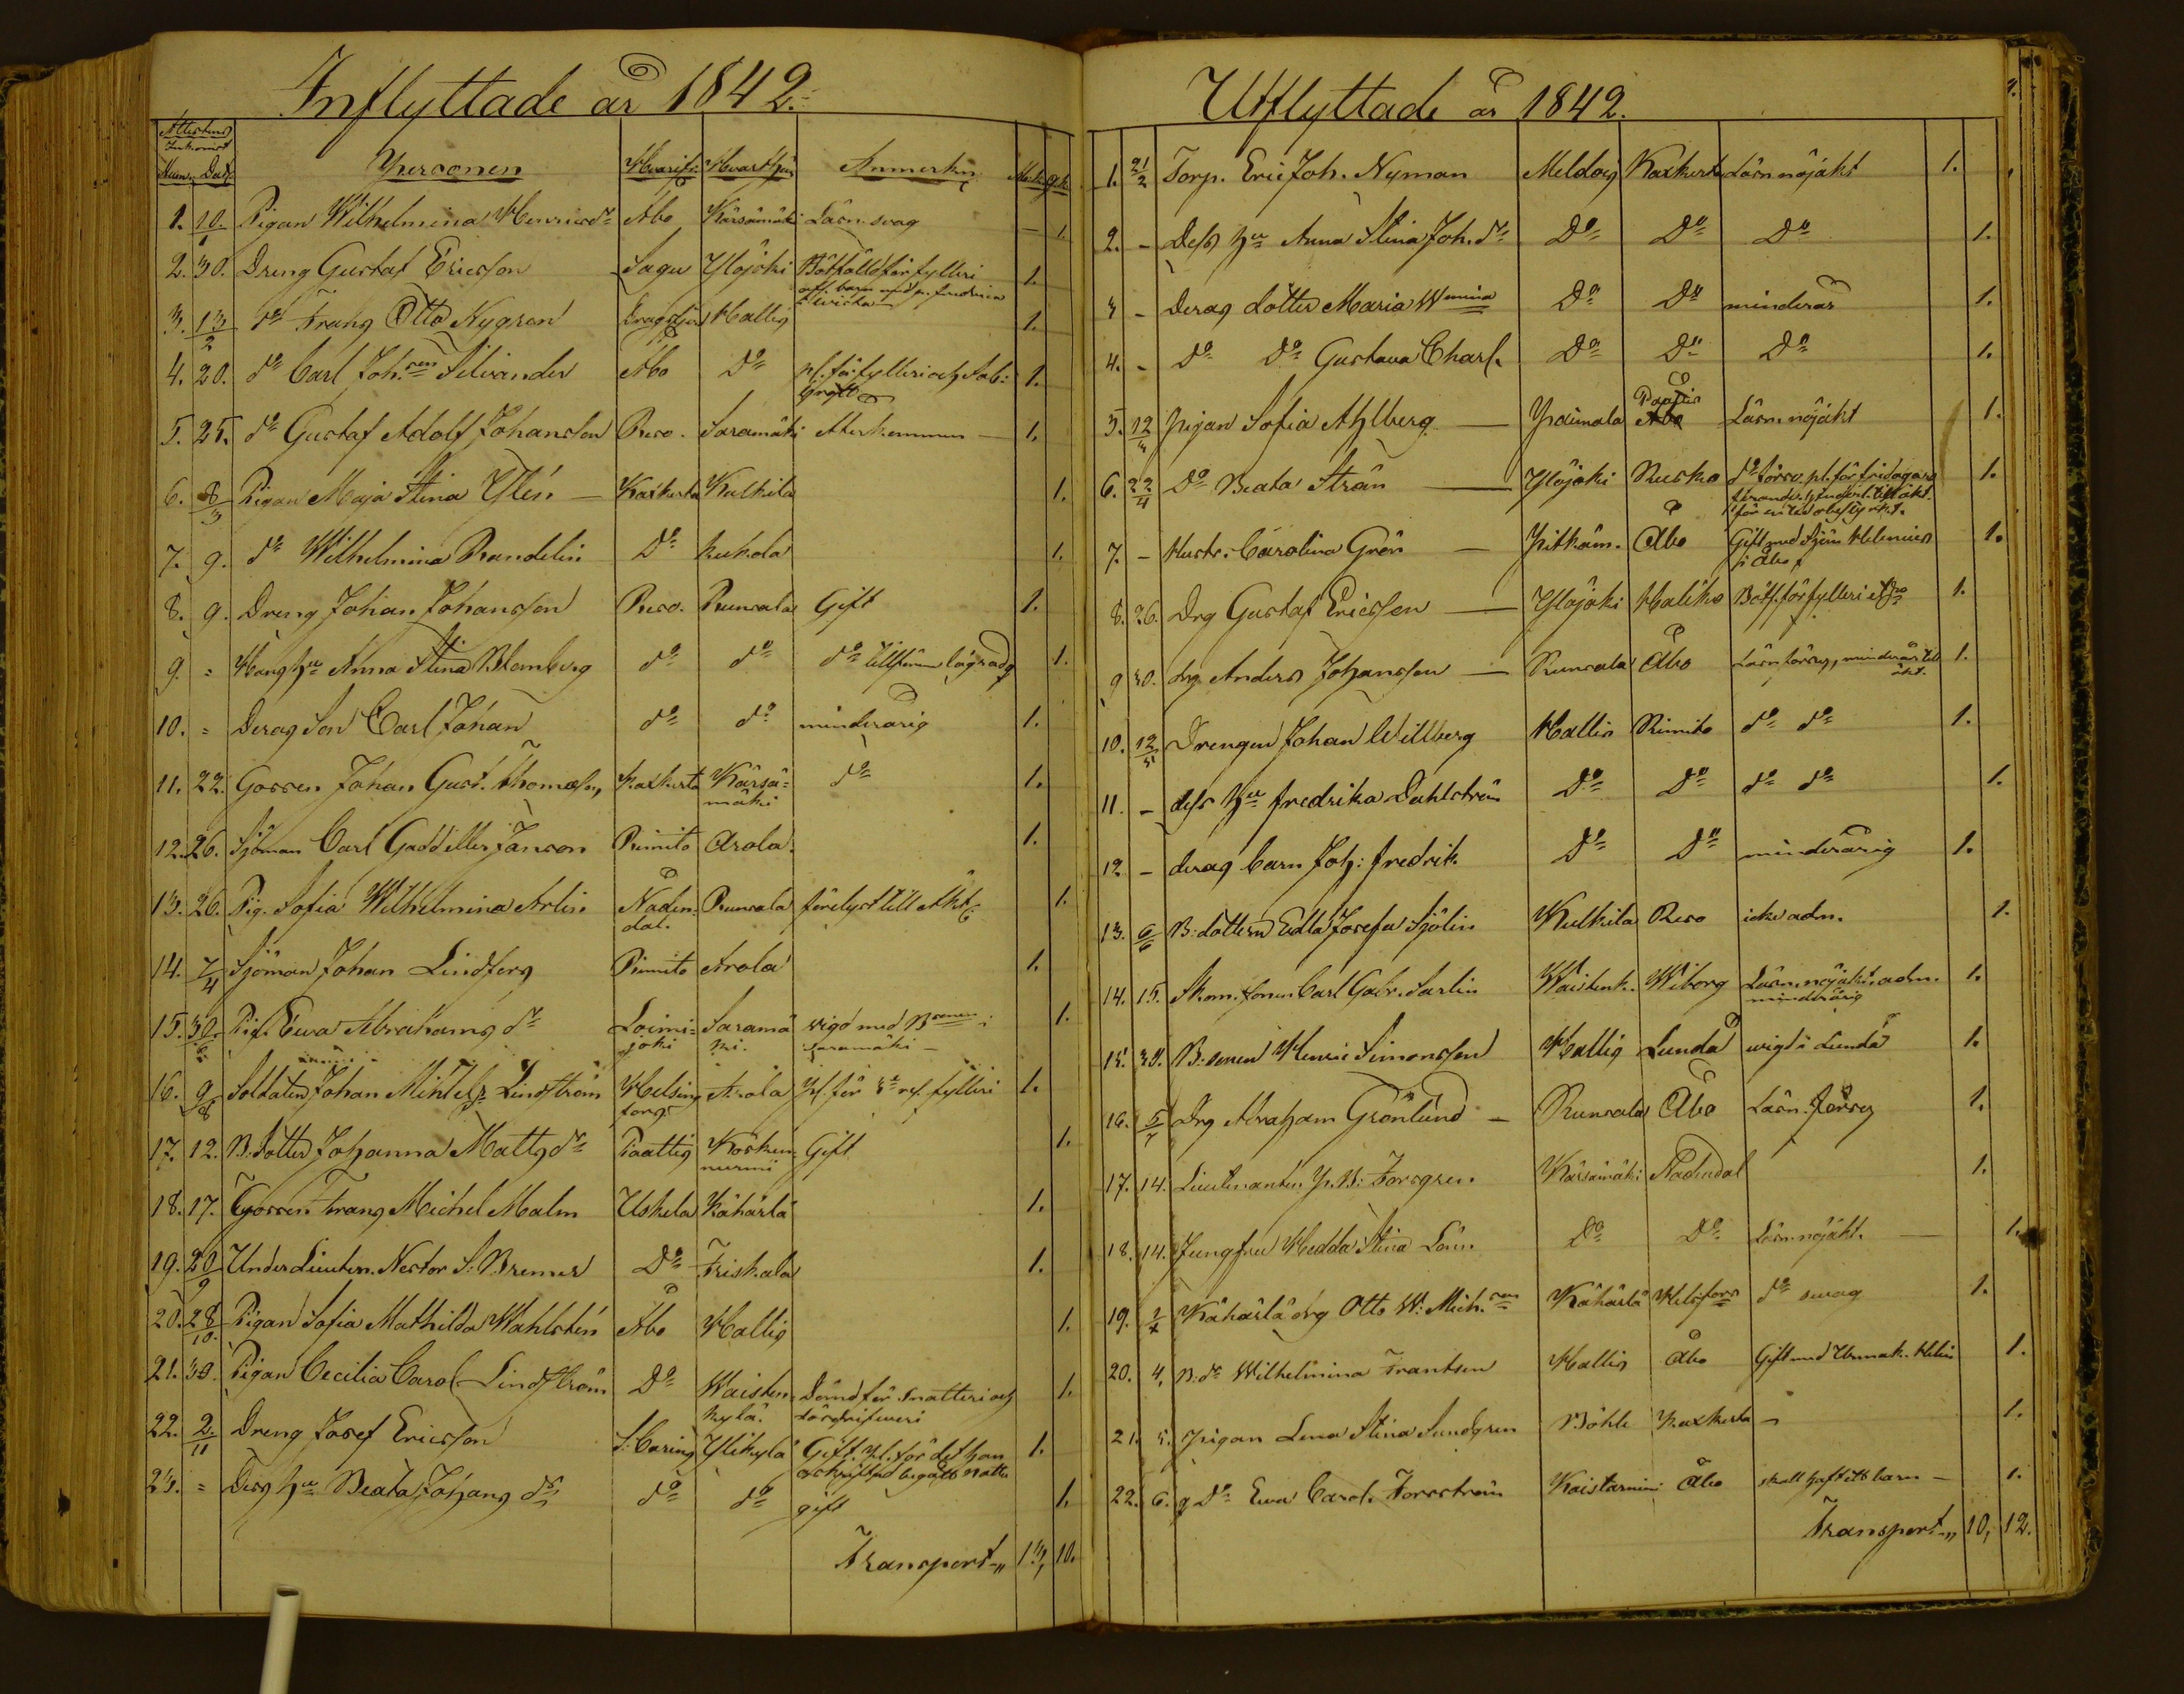 Inflyttade år 1842.
Attestens
Inkomst
Num. Dat.
Personen Hvarifr. Hvarthän Anmerkn. Mk. Qk.
1. 10/1 Pigan Wilhelmina Henricsdr Åbo Kärsämäki Läsn. svag – 1.
2. 30. Dreng Gustaf Ericsson Sagu Ylöjoki Bötfälld för fylleri 1.
3. 13/2 do Frans Otto Nygren Dragsfjerd Hallis 1.
4. 20. do Carl Joh.son Silvander Åbo Do pl. för fylleri och Sab: 1.
5. 25. do Gustaf Adolf Johansson Reso. Saramäki Återkommen – 1.
6. 8/3 Pigan Maja Stina Ylén – Kaxkerta Kulkila 1.
7. 9. do Wilhelmina Randelin Do kukola 1.
8. 9. Dreng Johan Johansson Reso. Runsala Gift 1.
9. = Hans hu Anna Stina Blomberg do do do tillförene lägrad 1.
10. = Deras Son Carl Johan do do minderårig 1.
11. 22. Gossen Johan Gust. Thomasson Kaxkerta Kärsä=
mäki do 1.
12. 26. Sjöman Carl Gadd eller Janson Rimito Arola. 1.
13. 26. Pig. Sofia Wilhelmina Arlin Nåden-
dal. Runsala förelyst till äkt: 1.
14. 7/4 Sjöman Johan Lindfors Rimito Arola 1.
15. 30. Pig. Ewa Abrahams dr Loimi=
joki Saramä
ki. vigd med Bsonen i
Saramäki – 1.
16. 9/8 Soldaten Johan Mikkelss. Lindström Helsing
fors Arola pl. för 3e res. fylleri 1.
17. 12. B. dotter Johanna Mattsdr Paattis Kosken
nurmi Gift 1.
18. 17. Gossen Frans Michel Malm Uskela Kähärlä 1.
19. 20/9 Under Lieuten. Nestor S. Bremer Do Friskala 1.
20. 28/10. Pigan Sofia Mathilda Wahlstén Åbo Hallis 1.
21. 30. Pigan Cecilia Carol. Lindström Do Waisten
kylä. Dömd för snatteri och
lösdrifveri 1.
22. 2/11 Dreng Josef Ericsson S:t Carins Ylikylä Gift. pl. för det han 1.
23. = Dess hu Beata Johans dr do do gift 1.
Transport „ 13, 10.
Utflyttade år 1842.
1. 21/2 Torp. Eric Joh. Nyman Meldois Kaxkerta Läsn. nöjakt 1.
2. – Dess hu Anna Stina Joh. dr Do Do Do 1.
3 – Deras dotter Maria Wmina Do Do minderår 1.
4. – Do Do Gustava Charl. Do Do Do 1.
5. 12/3 Pigan Sofia Ahlberg – Paimala Paattis Läsn. nöjakt 1.
6. 22/4 Do Beata Strån – Ylöjoki Rusko 1.
7. – Hustr. Carolina Grön – Pitkäm. Åbo Gift med Sjöm Helenius
i Åbo 1.
8. 26. Drg Gustaf Ericsson – Ylöjoki Haliko Bötf. för fylleri 1.
9 30. drg Anders Johansson – Runsala Åbo 1.
10. 12/5 Drengen Johan Willberg Hallis Rimito do do 1.
11. – dess hu fredrika Dahlström Do Do do do 1.
12 – deras barn Joh: fredrik Do Do minderårig 1.
13. 6/6 B: dottern Edla Josefa Sjölin Kulkila Reso icke adm. 1.
14. 15. Sk.om. sonen Carl Gabr. Sarlin Waistenk. Wiborg Läsn. nöjakt. adm.
minderårig 1.
15. 30. B. sonen Henric Simonsson Hallis Lundå vigd i Lundå 1.
16. 5/7 Drg Abraham Grönlund – Runsala Åbo Läsn. försv 1.
17. 14. Lieutnanten P. B: Forsgren Kärsämäki Nådendal 1.
18. 14. Jungfru Hedda Stina Lönn Do Do Läsn. nöjakt. – 1.
19. Kähärlä drg Otto W: Mich.son Kähärlä Helsfors do swag 1.
20. 4. B. dr Wilhelmina Frantsen Hallis Åbo Gift med Urmak. Helin 1.
21. 5. Pigan Lena Stina Sundgren Böhle Kaxkerta – 1.
22. 6. Do Ewa Carol. Forsström Kaistarniemi Åbo skall haft ett barn – 1.
Transport „ 10, 12.